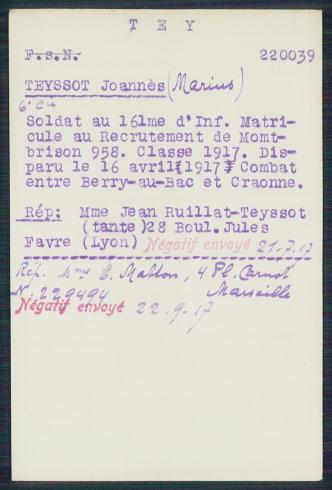 T E Y
F.s.N. 220039
TEYSSOT Joannès (Marius)
6e Cie
Soldat au 161me d'Inf. Matri-
cule au Recrutement de Momt-
brison 958. Classe 1917. Dis-
paru le 16 avril(1917) Combat
entre Berry-au-Bac et Craonne.
Rép: Mme Jean Ruillat-Teyssot
(tante)28 Boul.Jules
Favre (Lyon) Négatif envoyé 21.7.17
Rép. Mme E. Matton, 4 Pl. Carnot
N. 229494 Marseille
Négatif envoyé 22.9.17